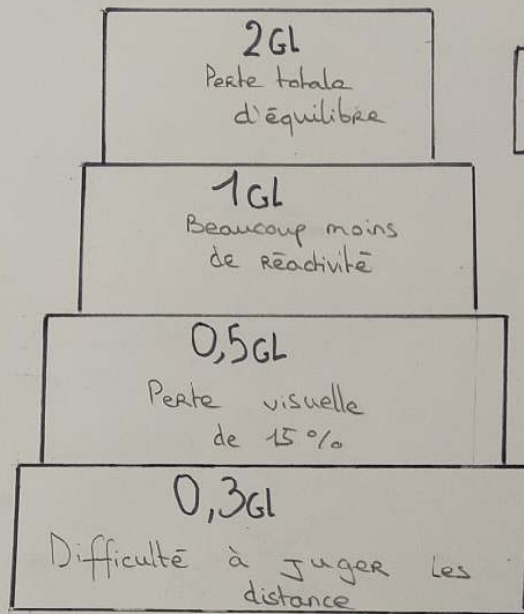 2GL
Perte totale
d'équilibre
1GL
Beaucoup moins
de Réactivité
0,5GL
Perte visuelle
de 15%
0,3Gl
Difficulté à juger les
distance